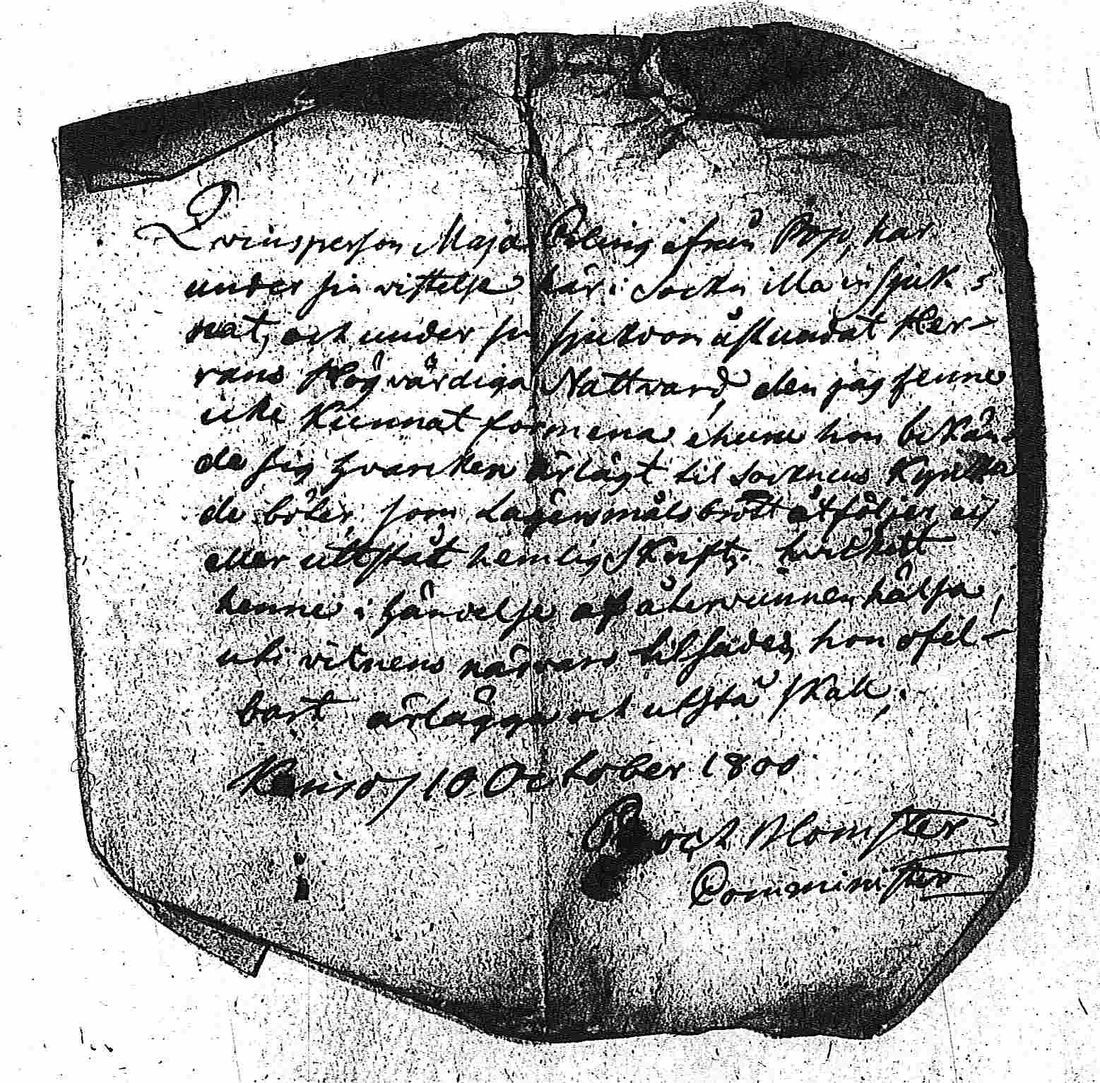 Qvinsperson Maja Poling ifrån Pojo, har
under sin vistelse här i Sockn illa insjuk-
nat, och under sin sjukdom åstundat Her-
rans Högvärdiga Nattvard, den jag henne
icke kunnat formena, ehuru hon bekän-
de sig hvarcken ärlagt til Soknens Kyrcka
de böter, som Lägersmåls brott åtfölljer, ej
eller utstått hemlig Skrift; hvilckett
henne i händelse af återvunnen hälsa,
uti vitnens närvaro tilsades, hon ofel-
bart ärlägga och utstå skall,
10 October 1800
Blomster
Comminister